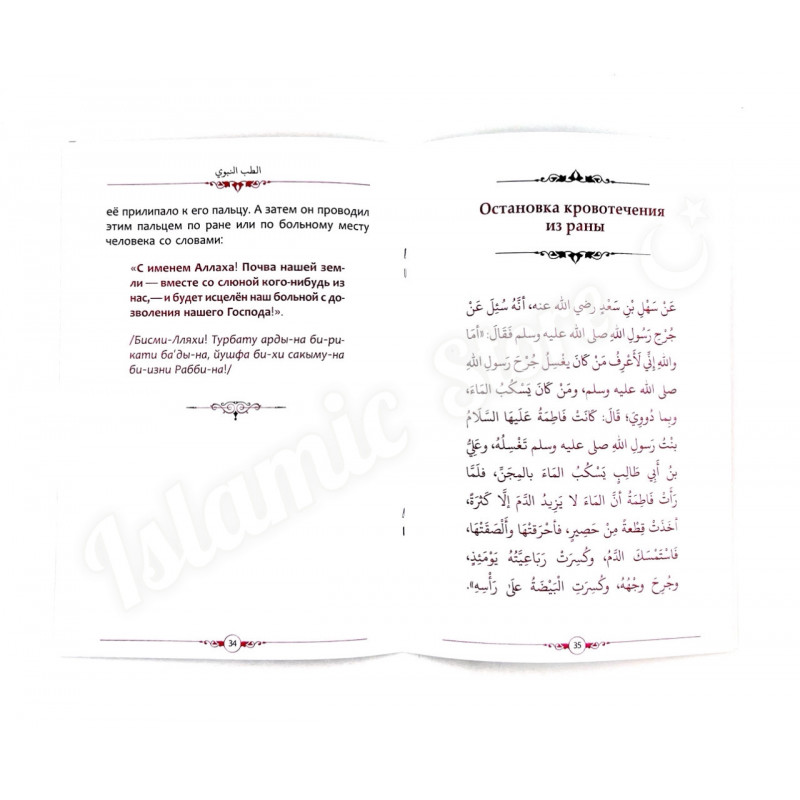 الطب النبوي
её прилипало к его пальцу. А затем он проводил
этим пальцем по ране или по больному месту
человека со словами:
«С именем Аллаха! Почва нашей зем-
ли — вместе со слюной кого-нибудь из
нас,— и будет исцелён наш больной с до-
зволения нашего Господа!».
/Бисми-Лляхи! Турбату арды-на би-ри-
кати ба'ды-на, йушфа би-хи сакыму-на
би-изни Рабби-на!/
34
Остановка кровотечения
из раны
عَنْ سَهْلِ بْنِ سَعْدٍ رضي الله عنه، أَنَّهُ سُئِلَ عَنْ
جُرْحِ رَسُولِ اللهِ صلى الله عليه وسلم فَقَالَ: «أَمَا
واللهِ إِنِّي لَأَعْرِفُ مَنْ كَانَ يَغْسِلُ جُرْحَ رَسُولِ اللهِ
صلى الله عليه وسلم، ومَنْ كَانَ يَسْكُبُ المَاءَ،
وبِما دُووِيَ؛ قَالَ: كَانَتْ فَاطِمَةُ عَلَيهَا السَّلَامُ
بِنْتُ رَسُولِ اللهِ صلى عليه وسلم تَغْسِلُهُ، وعَلِيُّ
بنُ أَبِي طَالِبٍ يَسْكُبُ المَاءَ بالمِجَنِّ، فلَمَّا
رَأَتْ فَاطِمَةُ أنَّ المَاءَ لا يَزِيدُ الدَّمَ إلَّا كَثْرَةً،
أخَذَتْ قِطْعَةً مِنْ حَصِيرٍ، فأحْرَقَتْهَا وأَلْصَقَتْهَا،
فَاسْتَمْسَكَ الدَّمُ، وكُسِرَتْ رَبَاعِيَّتُهُ يَوْمَئِذٍ،
وجُرِحَ وجْهُهُ، وكُسِرَتِ الْبَيْضَةُ علَى رَأْسِهِ».
35
Islamic Style